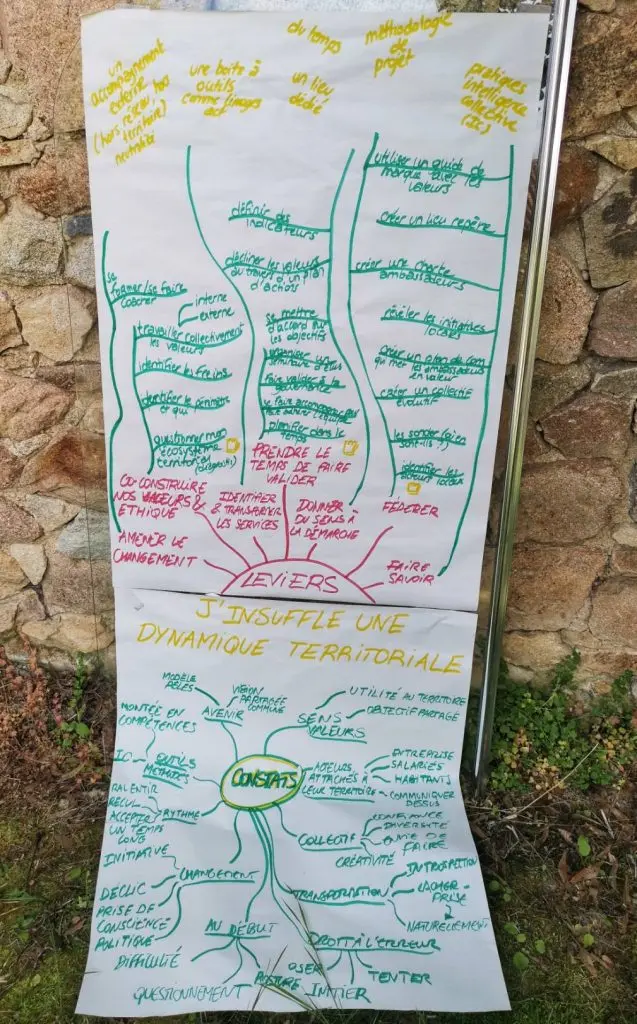 un
accompagnement
externe
(hors réseau, hors
territoire)
neutralité
une boîte à
outils
comme l'images
act
du temps
un lieu
dédié
méthodologie
de
projet
pratiques
intelligence
collective
(IC)
se
former/se faire
coacher
interne
externe
travailler collectivement
les valeurs
identifier les freins
identifier le périmètre
et qui
questionner mon
écosystème
territorial
définir des
indicateurs
décliner les valeurs
au travers d'un plan
d'actions
se mettre
d'accord sur
les objectifs
organiser un
séminaire d'élus
faire valider à la
gouvernance
se faire accompagner pour
faire adhérer l'équipe
planifier dans le
temps
utiliser un guide de
marque avec les
valeurs
créer un lieu repère
créer une charte
ambassadeurs
révéler les initiatives
locales
créer un plan de com
qui met les ambassadeurs
en valeur
créer un collectif
évolutif
les sonder (qui en
sont-ils ?)
identifier les
acteurs locaux
CO-CONSTRUIRE
NOS VALEURS &
ETHIQUE
IDENTIFIER
& TRANSFORMER
LES SERVICES
PRENDRE LE
TEMPS DE FAIRE
VALIDER
DONNER
DU SENS À
LA DÉMARCHE
FÉDÉRER
AMENER LE
CHANGEMENT
FAIRE
SAVOIR
LEVIERS
J'INSUFFLE UNE
DYNAMIQUE TERRITORIALE
CONSTATS
MODÈLE
VISION
PARTAGÉE
COMMUNE
AVENIR
UTILITÉ AU TERRITOIRE
OBJECTIF PARTAGÉ
SENS
VALEURS
MONTÉE EN
COMPÉTENCES
IC
OUTILS
MÉTHODES
ACTEURS
ATTACHÉS À
LEUR TERRITOIRE
ENTREPRISE
SALARIÉS
HABITANTS
COMMUNIQUER
DESSUS
RALENTIR
RECUL
ACCEPTER
UN TEMPS
LONG
RYTHME
COLLECTIF
CONFIANCE
DIVERSITÉ
ENVIE DE
FAIRE
CRÉATIVITÉ
INITIATIVE
DÉCLIC
PRISE DE
CONSCIENCE
POLITIQUE
CHANGEMENT
TRANSFORMATION
INTROSPECTION
LÂCHER-
PRISE
NATURELLEMENT
AU DÉBUT
DIFFICULTÉ
QUESTIONNEMENT
POSTURE
DROIT À L'ERREUR
OSER
INITIER
TENTER